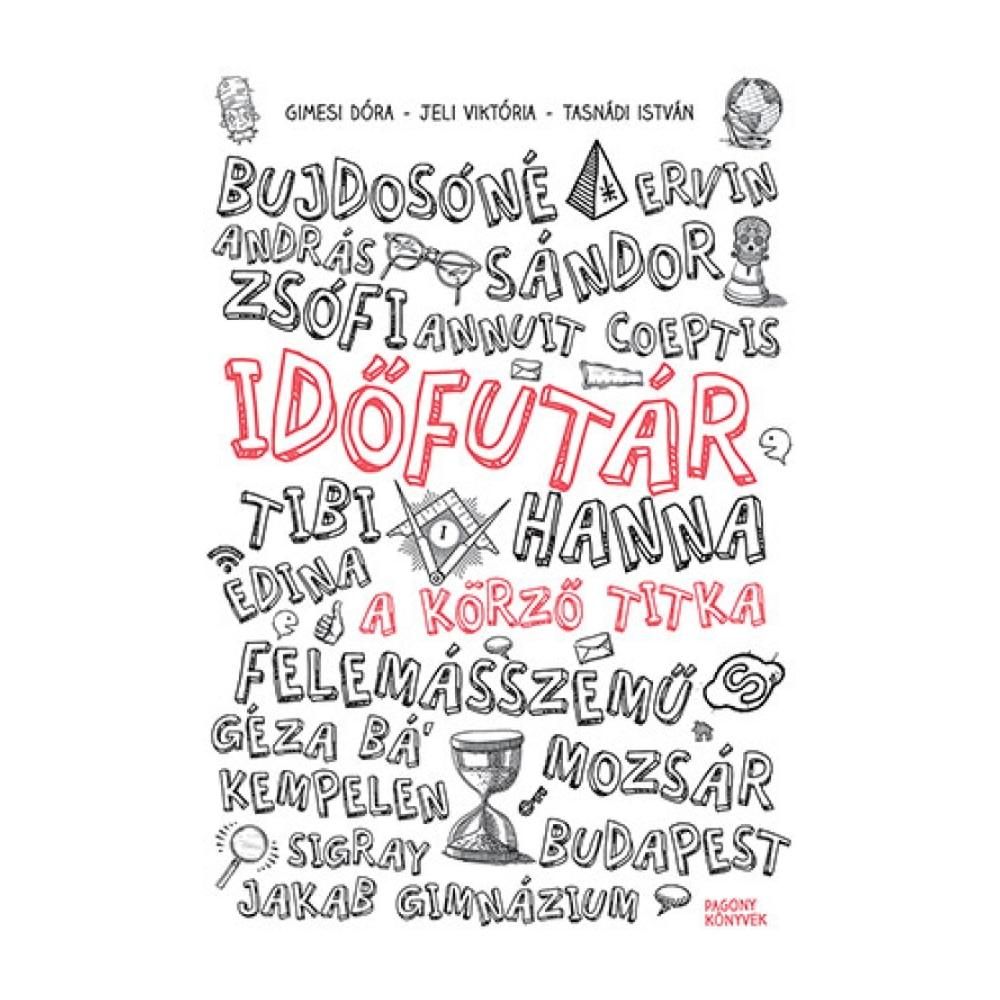 GIMESI DÓRA - JELI VIKTÓRIA - TASNÁDI ISTVÁN
BUJDOSÓNÉ ERVIN
ANDRÁS SÁNDOR
ZSÓFI ANNUIT COEPTIS
IDŐFUTÁR
TIBI HANNA
EDINA
A KÖRZŐ TITKA
FELEMÁSSZEMŰ S
GÉZA BÁ' MOZSÁR
KEMPELEN
SIGRAY BUDAPEST
JAKAB GIMNÁZIUM
PAGONY
KÖNYVEK